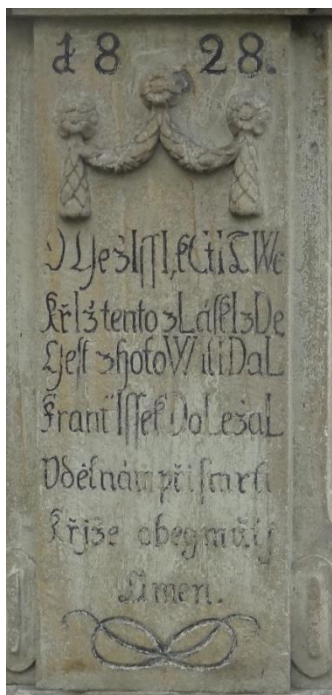 1828.
O GežIſſI, kCti TWe
křIž tento z LáſkI zDe
geſt zhotoWiti DaL
FrantIſſek DoLežaL
Vděl nám při ſmrti
křjže obegmútj
Amen.